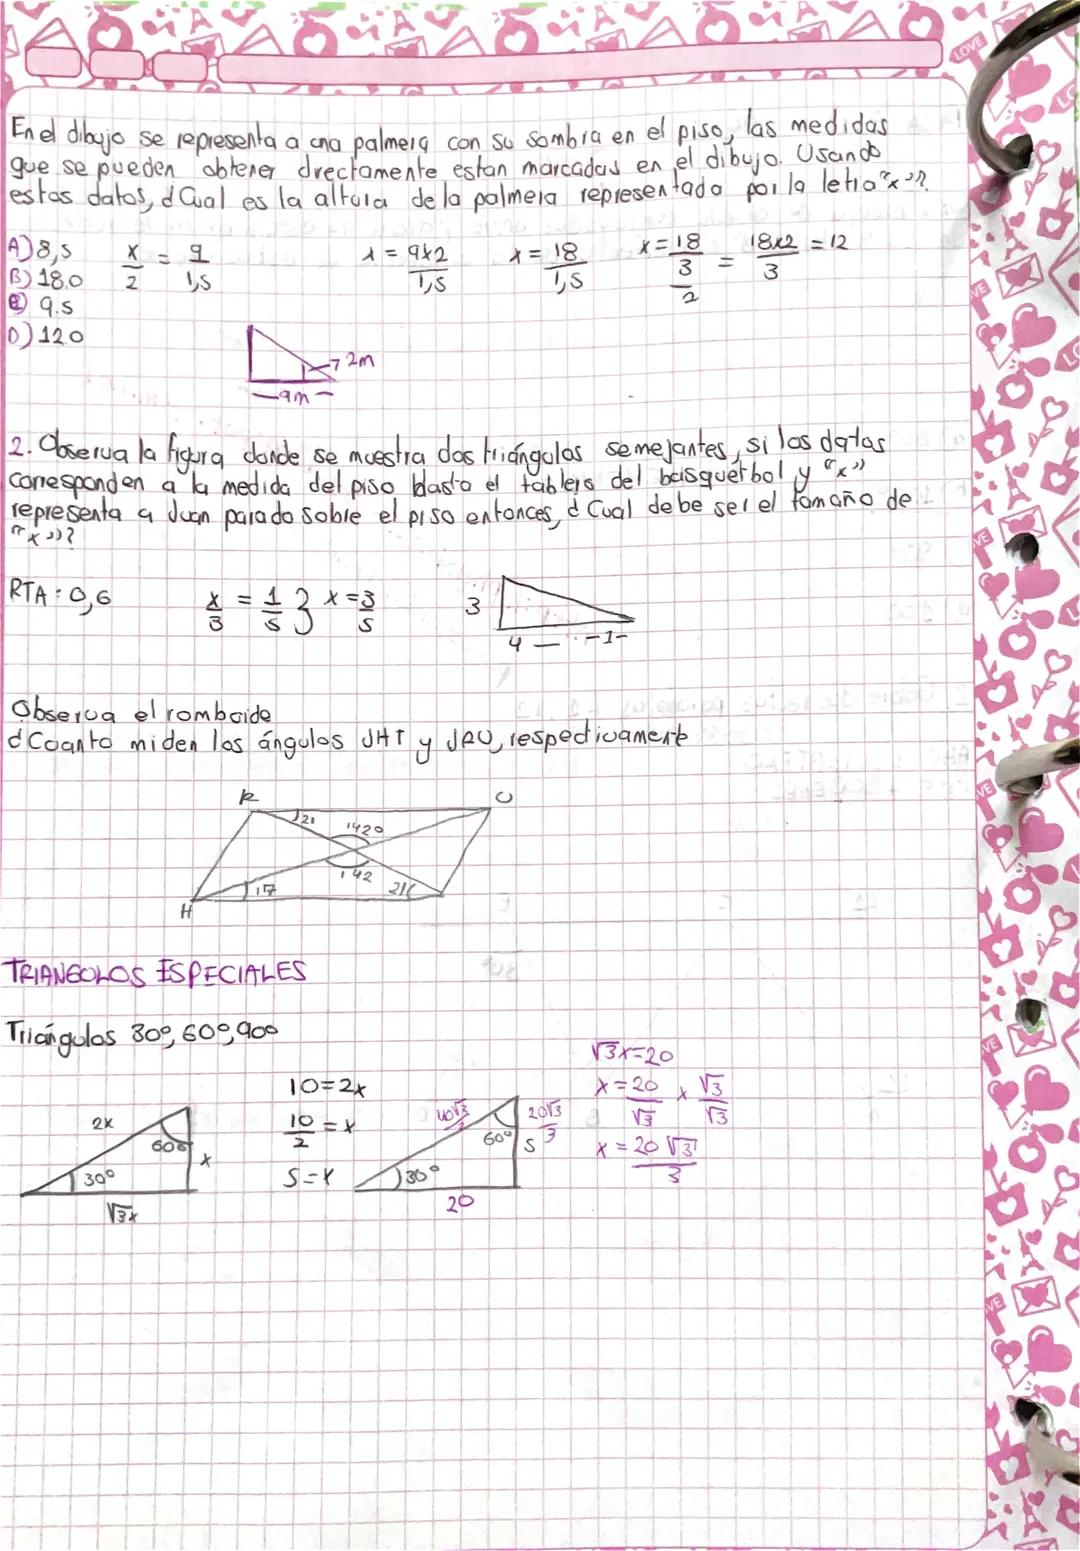 En el dibujo se representa a una palmera con su sombra en el piso, las medidas
que se pueden obtener directamente estan marcadas en el dibujo. Usando
estas datos, ¿Cual es la altura de la palmera representada por la letra "x"?
A) 8,5
B) 18.0
C) 9.5
D) 12.0
x/2 = 9/1,5
x = 9x2/1,5
x = 18/1,5
x = 18/(3/2) = 18x2/3 = 12
2m
9m
2. Observa la figura donde se muestra dos triángulos semejantes, si los datos
corresponden a la medida del piso hasta el tablero del basquetbol y "x"
representa a Juan parado sobre el piso entonces, ¿Cual debe ser el tamaño de
"x"?
RTA: 0,6
x/3 = 1/5 } x = 3/5
3
4 — - 1 -
Observa el romboide
¿Cuanto miden los ángulos JHT y JRU, respectivamente
R
U
21
142°
142
17
21
H
TRIANGULOS ESPECIALES
Triángulos 30°, 60°, 90°
2x
60°
30°
x
√3x
10=2x
10/2 = x
5=x
60°
5
20√3/3
30°
20
√3x=20
x = 20/√3 x √3/√3
x = 20√3/3
LOVE